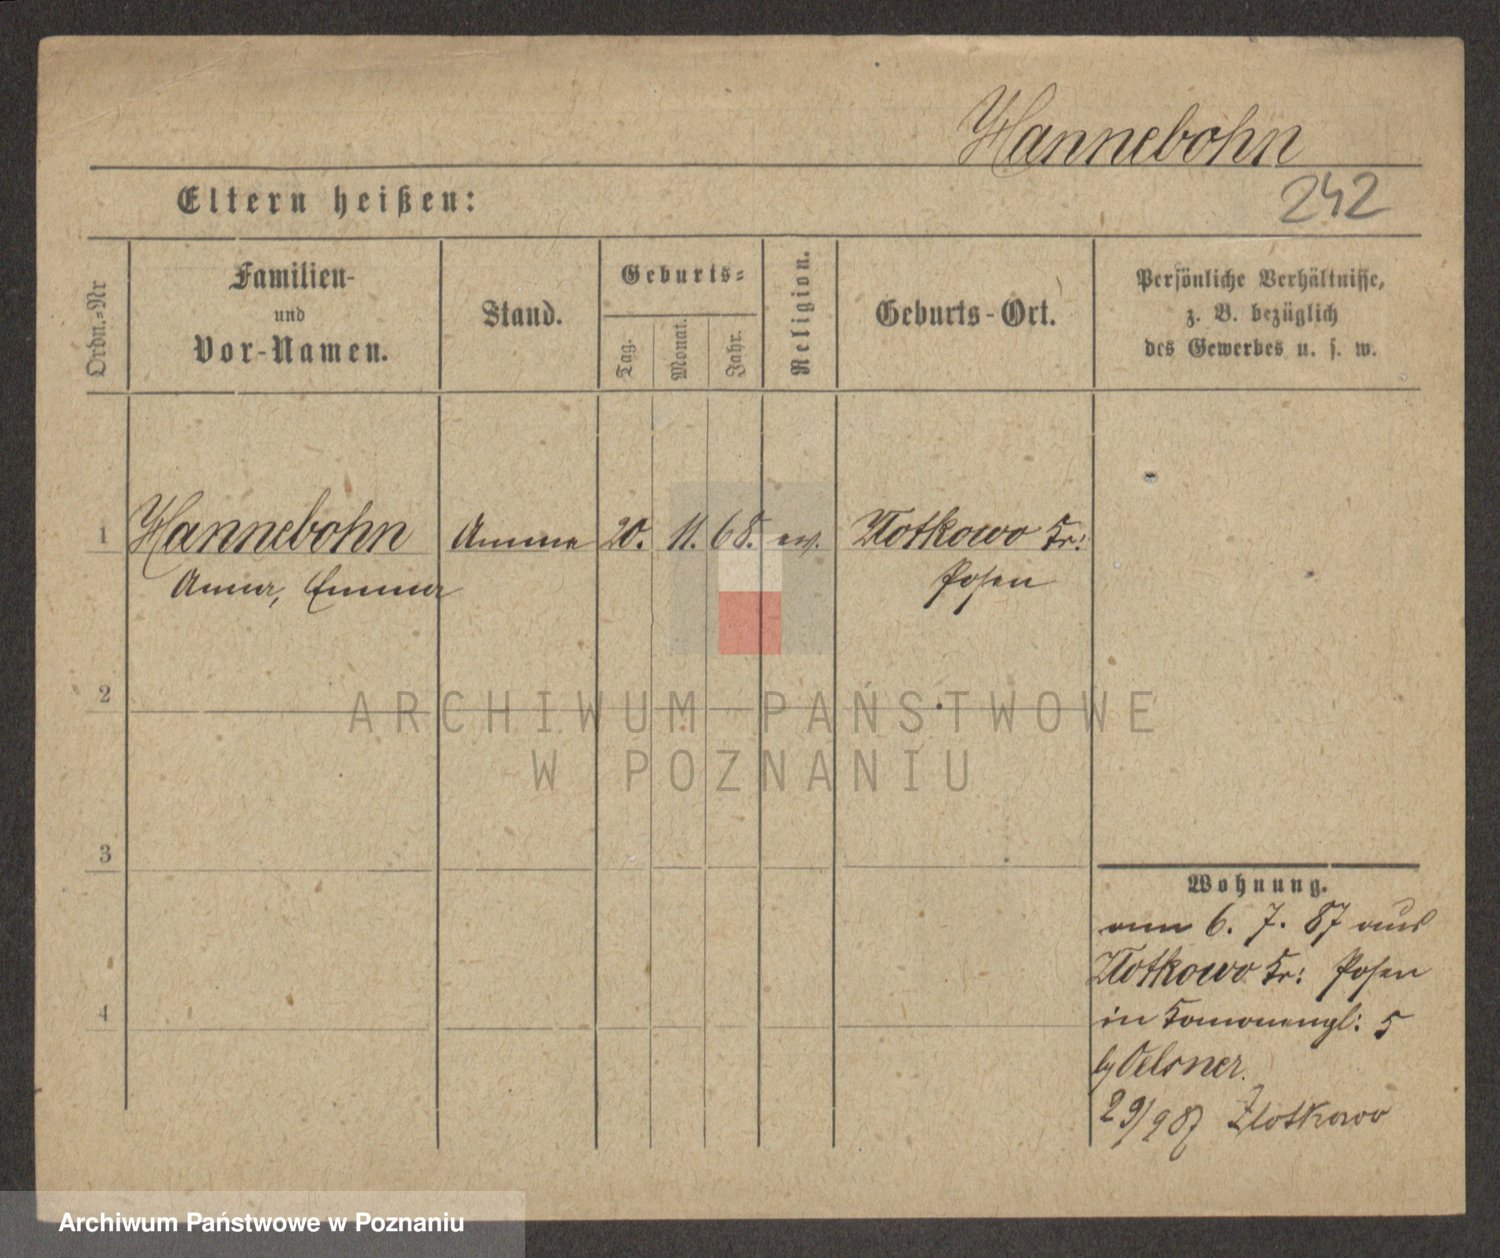 Hannebohn
Eltern heißen:
242
Ordn.-Nr
Familien-
und
Vor-Namen.
Stand.
Geburts-
Tag.
Monat.
Jahr.
Religion.
Geburts-Ort.
Persönliche Verhältnisse,
z. B. bezüglich
des Gewerbes u. s. w.
1 Hannebohn Amme 20. 11. 68. ev. Zlotkowo Kr:
Anna, Emma Posen
2
ARCHIWUM PAŃSTWOWE
W POZNANIU
3
Wohnung.
6. 7. 87 aus
Zlotkowo Kr: Posen
4
in 5
Oelsner.
29/9 87 Zlotkowo
Archiwum Państwowe w Poznaniu